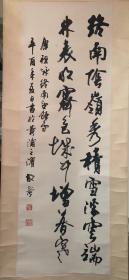 終南陰嶺秀積雪浮雲端
林表明霽色城中增暮寒
唐祖詠終南望餘雪詩句
辛酉年夏日書於黃浦之濱